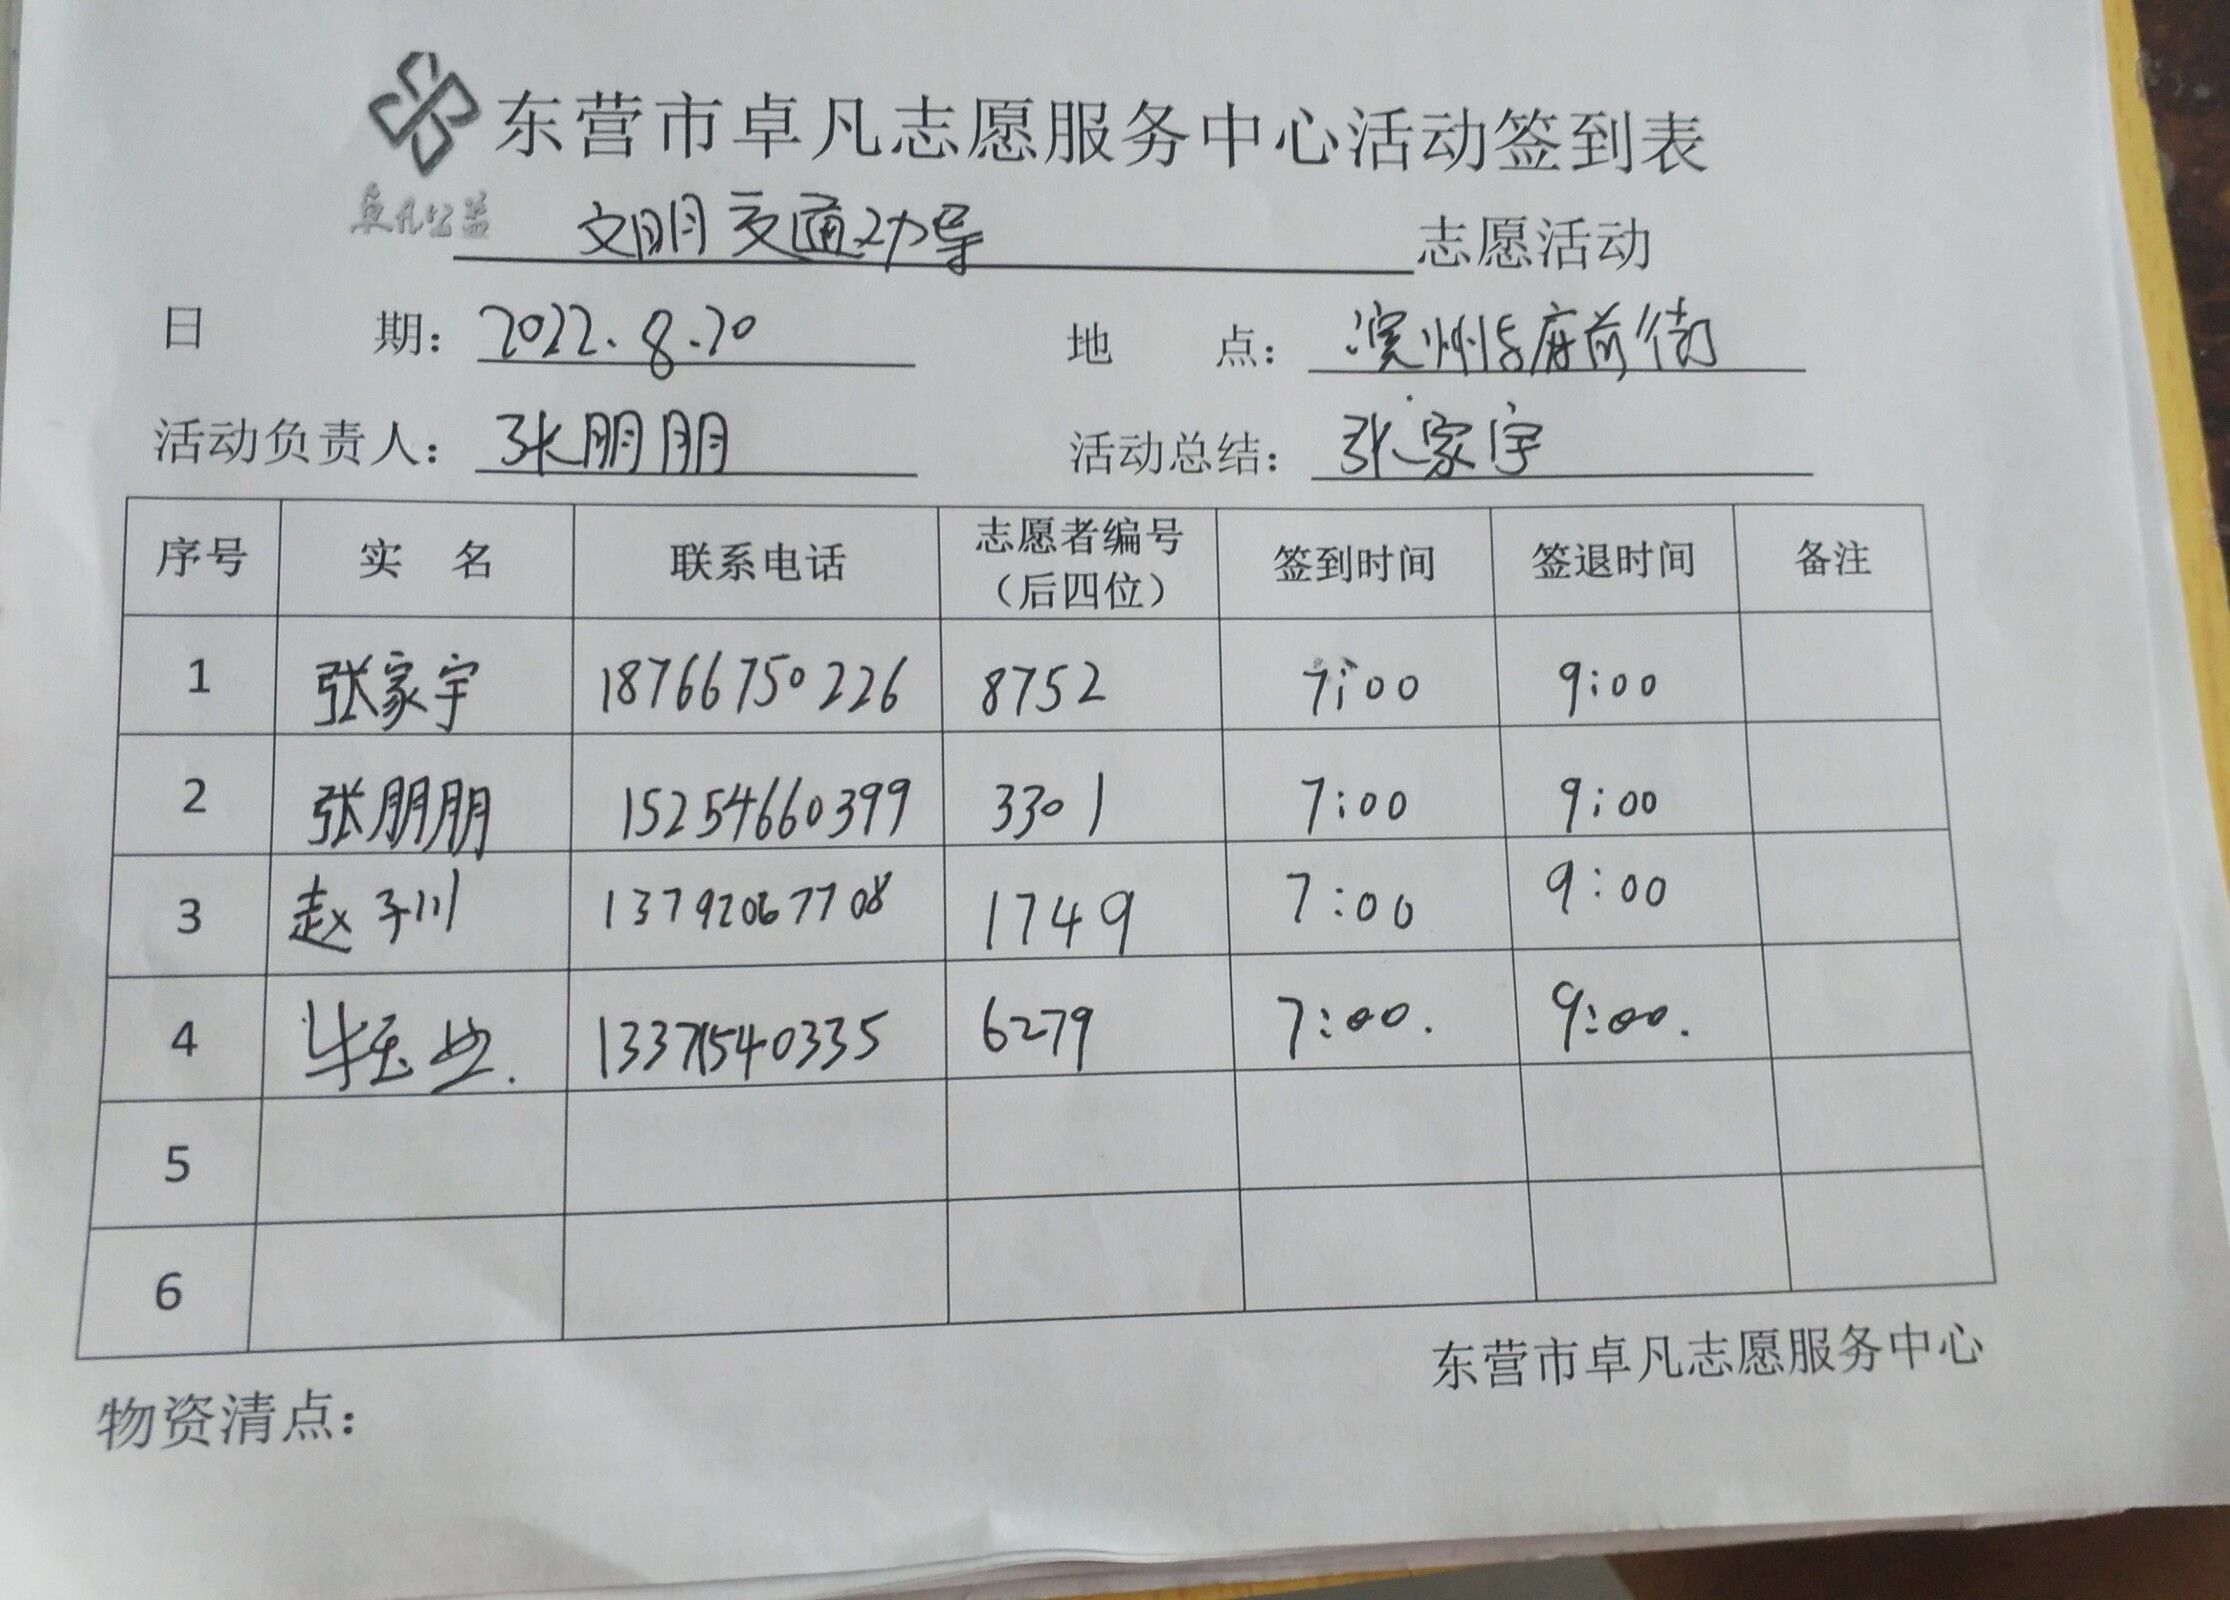 东营市卓凡志愿服务中心活动签到表
卓凡公益
文明交通劝导 志愿活动
日 期：2022.8.20 地 点：滨州路府前街
活动负责人：张朋朋 活动总结：张家宇
序号 实 名 联系电话 志愿者编号（后四位） 签到时间 签退时间 备注
1 张家宇 18766750226 8752 7:00 9:00
2 张朋朋 15254660399 3301 7:00 9:00
3 赵子川 13792067708 1749 7:00 9:00
4 13371540335 6279 7:00. 9:00.
5
6
东营市卓凡志愿服务中心
物资清点：